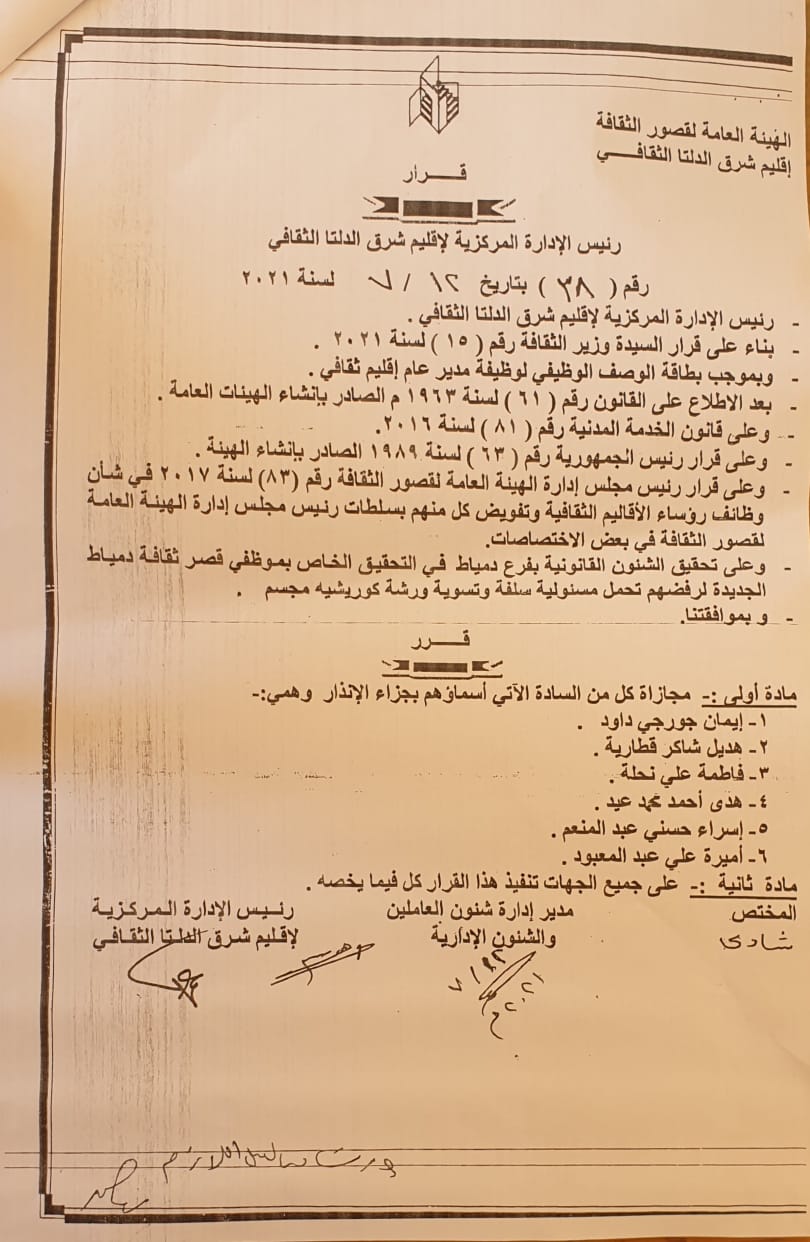 الهيئة العامة لقصور الثقافة
إقليم شرق الدلتا الثقافـــي
قـــرار
رئيس الإدارة المركزية لإقليم شرق الدلتا الثقافي
رقم ( ٣٨ ) بتاريخ ١٢ / ٧ لسنة ٢٠٢١
- رئيس الإدارة المركزية لإقليم شرق الدلتا الثقافي .
- بناء على قرار السيدة وزير الثقافة رقم ( ١٥ ) لسنة ٢٠٢١ .
- وبموجب بطاقة الوصف الوظيفي لوظيفة مدير عام إقليم ثقافي .
- بعد الاطلاع على القانون رقم ( ٦١ ) لسنة ١٩٦٣ م الصادر بإنشاء الهيئات العامة .
- وعلى قانون الخدمة المدنية رقم ( ٨١ ) لسنة ٢٠١٦.
- وعلى قرار رئيس الجمهورية رقم ( ٦٣ ) لسنة ١٩٨٩ الصادر بإنشاء الهيئة .
- وعلى قرار رئيس مجلس إدارة الهيئة العامة لقصور الثقافة رقم (٨٣) لسنة ٢٠١٧ في شأن
وظائف رؤساء الأقاليم الثقافية وتفويض كل منهم بسلطات رئيس مجلس إدارة الهيئة العامة
لقصور الثقافة في بعض الاختصاصات.
- وعلى تحقيق الشئون القانونية بفرع دمياط في التحقيق الخاص بموظفي قصر ثقافة دمياط
الجديدة لرفضهم تحمل مسئولية سلفة وتسوية ورشة كوريشيه مجسم .
- و بموافقتنا.
قـــرر
مادة أولى :- مجازاة كل من السادة الآتي أسماؤهم بجزاء الإنذار وهمي:-
١- إيمان جورجي داود .
٢- هديل شاكر قطارية .
٣- فاطمة علي نحلة .
٤- هدى أحمد محمد عيد .
٥- إسراء حسني عبد المنعم .
٦- أميرة علي عبد المعبود .
مادة ثانية :- على جميع الجهات تنفيذ هذا القرار كل فيما يخصه .
المختص مدير إدارة شئون العاملين رئيس الإدارة المركزية
شادى والشئون الإدارية لإقليم شرق الدلتا الثقافي